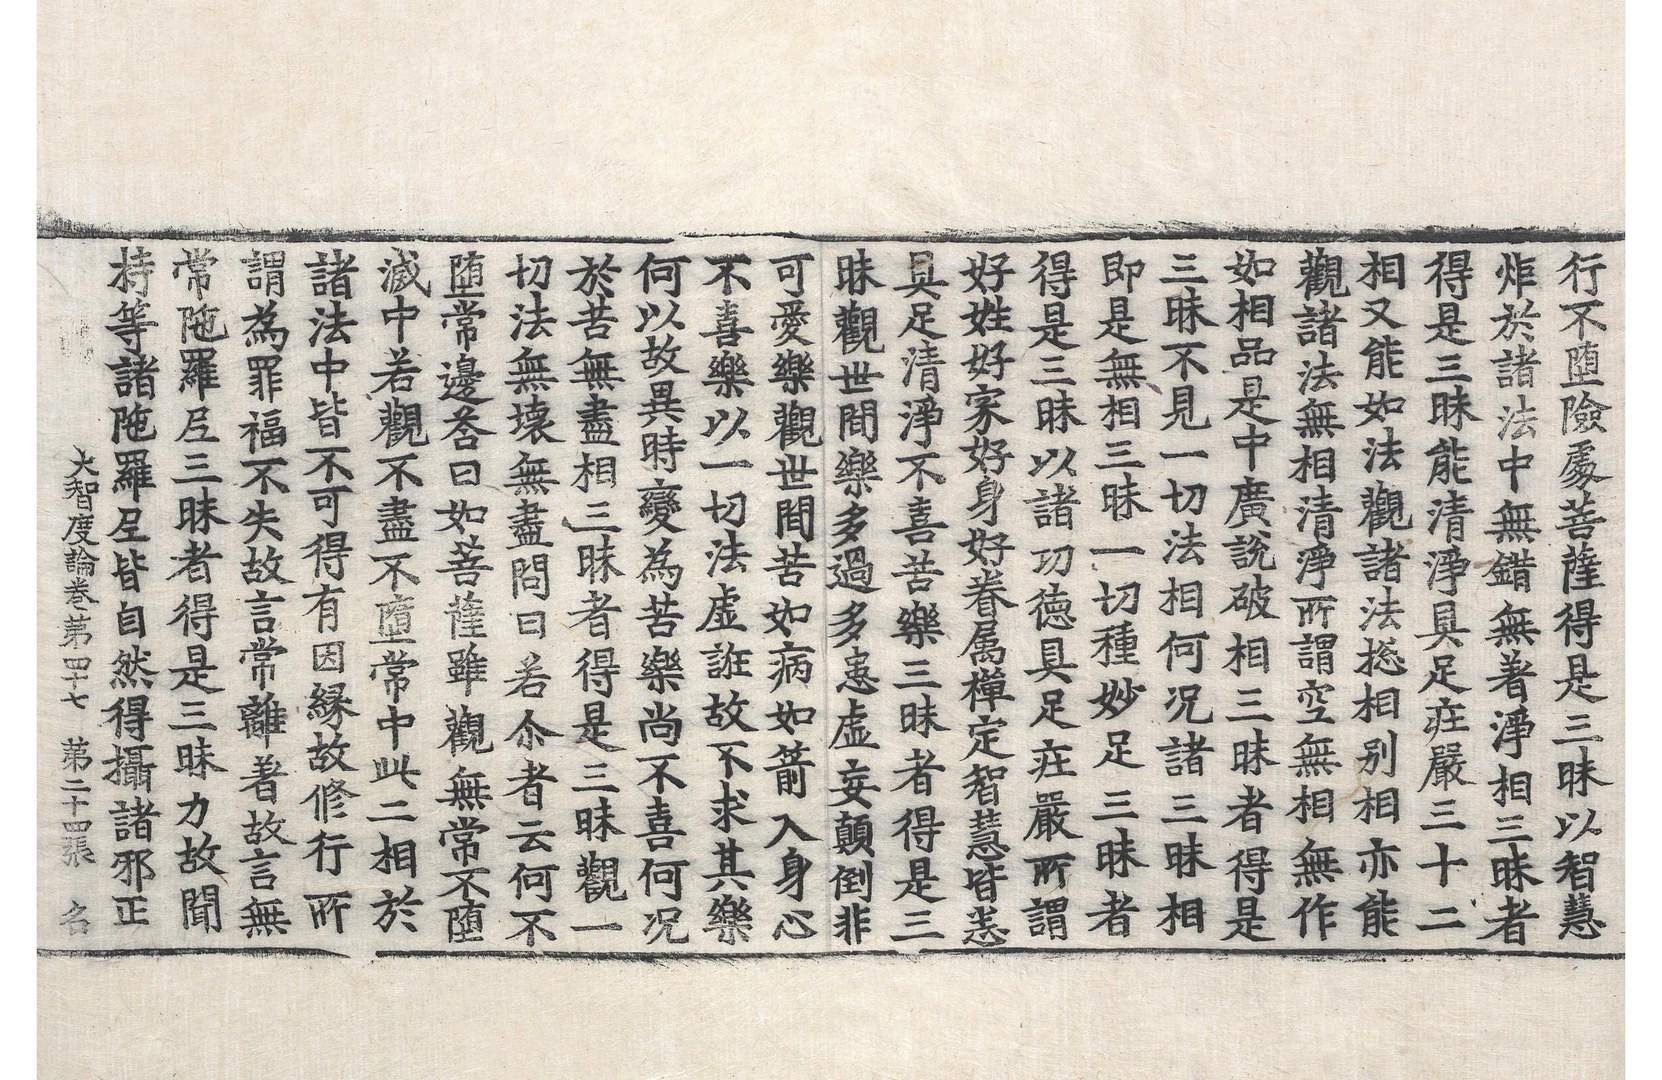 行不墮險處菩薩得是三昧以智慧
炬於諸法中無錯無著淨相三昧者
得是三昧能清淨具足莊嚴三十二
相又能如法觀諸法捴相別相亦能
觀諸法無相清淨所謂空無相無作
如相品是中廣說破相三昧者得是
三昧不見一切法相何況諸三昧相
即是無相三昧一切種妙足三昧者
得是三昧以諸功德具足莊嚴所謂
好姓好家好身好眷属禪定智慧皆悉
具足清淨不喜苦樂三昧者得是三
昧觀世間樂多過多患虛妄顛倒非
可愛樂觀世間苦如病如箭入身心
不喜樂以一切法虛誑故不求其樂
何以故異時變為苦樂尚不喜何况
於苦無盡相三昧者得是三昧觀一
切法無壞無盡問曰若尒者云何不
墮常邊荅曰如菩薩雖觀無常不墮
滅中若觀不盡不墮常中此二相於
諸法中皆不可得有因縁故修行所
謂為罪福不失故言常離著故言無
常陁羅尼三昧者得是三昧力故聞
持等諸陁羅尼皆自然得攝諸邪正
大智度論卷第四十七 第二十四張 名